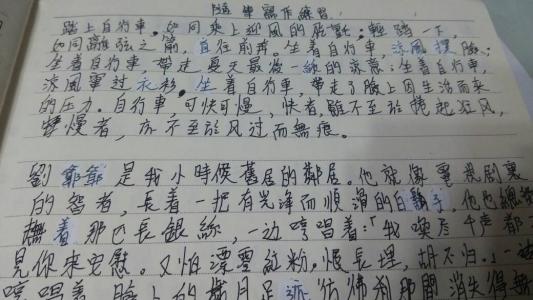 隨筆寫作練習
踏上自行車,如同乘上迎風的
,輕踏一下,
如同離弦之箭,直往前奔。坐着自行車,涼風撲臉;
坐着自行車,帶走夏天最後一絲的涼意;坐着自行車,
涼風穿过衣衫。坐着自行車,帶走了臉上因生活而来
的压力。自行車可快可慢,快者,雖不至於捲起狂风,
慢者,亦不至於风过而無痕。
劉爺爺是我小時候舊居的鄰居。他就像電視劇裏
的智者,長着一把有光泽而順滑的白鬍子,他也總愛
撫着那巴長銀絲,一边哼唱着:「我喚左千声都
見你来安慰。又怕漂零紅粉,恨長埋,胡不归。」一边
哼唱着,臉上的歲月足迹彷彿剎那間消失得無